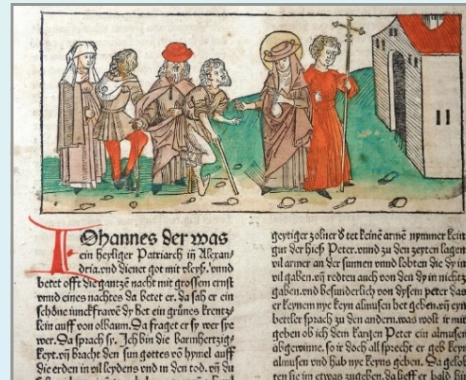 Johannes der was
ein heyliger Patriarch in Alexan
dria. vnd dienet got mit fleyß. vnnd
betet offt die gantze nacht mit grossem ernst
vnnd eines nachtes da betet er. da sah er ein
schöne iunckfrawē dy het ein grünes krentz
lein auff von ölbaum. Da fraget er sy wer sye
wer. Da sprach sy. Ich bin die barmhertzig
keyt. vñ bracht den sun gottes võ hymel auff
die erden in vil leydens vnd in den tod. vñ du
geytiger zolner ð tet keinē armē nymmer kein
gut der hieß Peter. vnnd zu den zeyten lagen
vil armer an der sunnen vnnd lobten die dy in
vil gaben. vñ redten auch von den dy in nichtz
gaben. vnd besunderlich von dysem peter das
er keynem nye keyn almusen het geben. vñ eyn
bettler sprach zu den andern. was wolt ir mir
geben ob ich dem kargen Peter ein almusen
abgewinne. so ir doch all sprecht er geb keyn
almusen vnd hub nye keyns geben. Da gelob